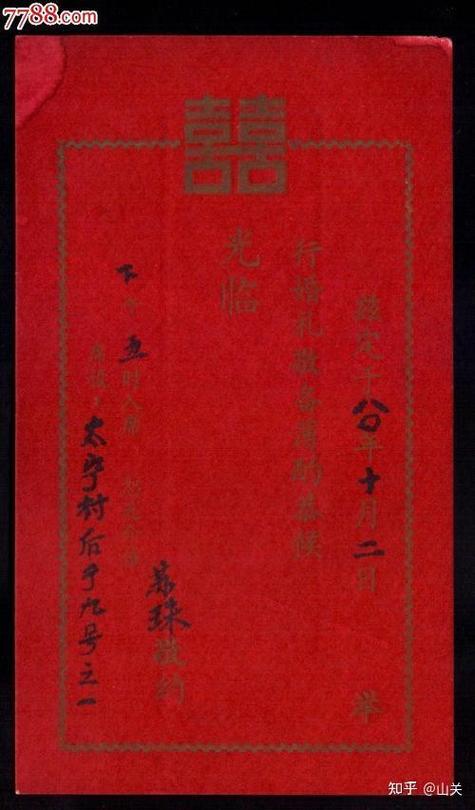 7788.com
囍
兹定于八〇年十月二日 举
行婚礼敬备薄酌恭候
光临
珠敬约
下午五时入席
席设：太宁村后九号之一
知乎 @山关